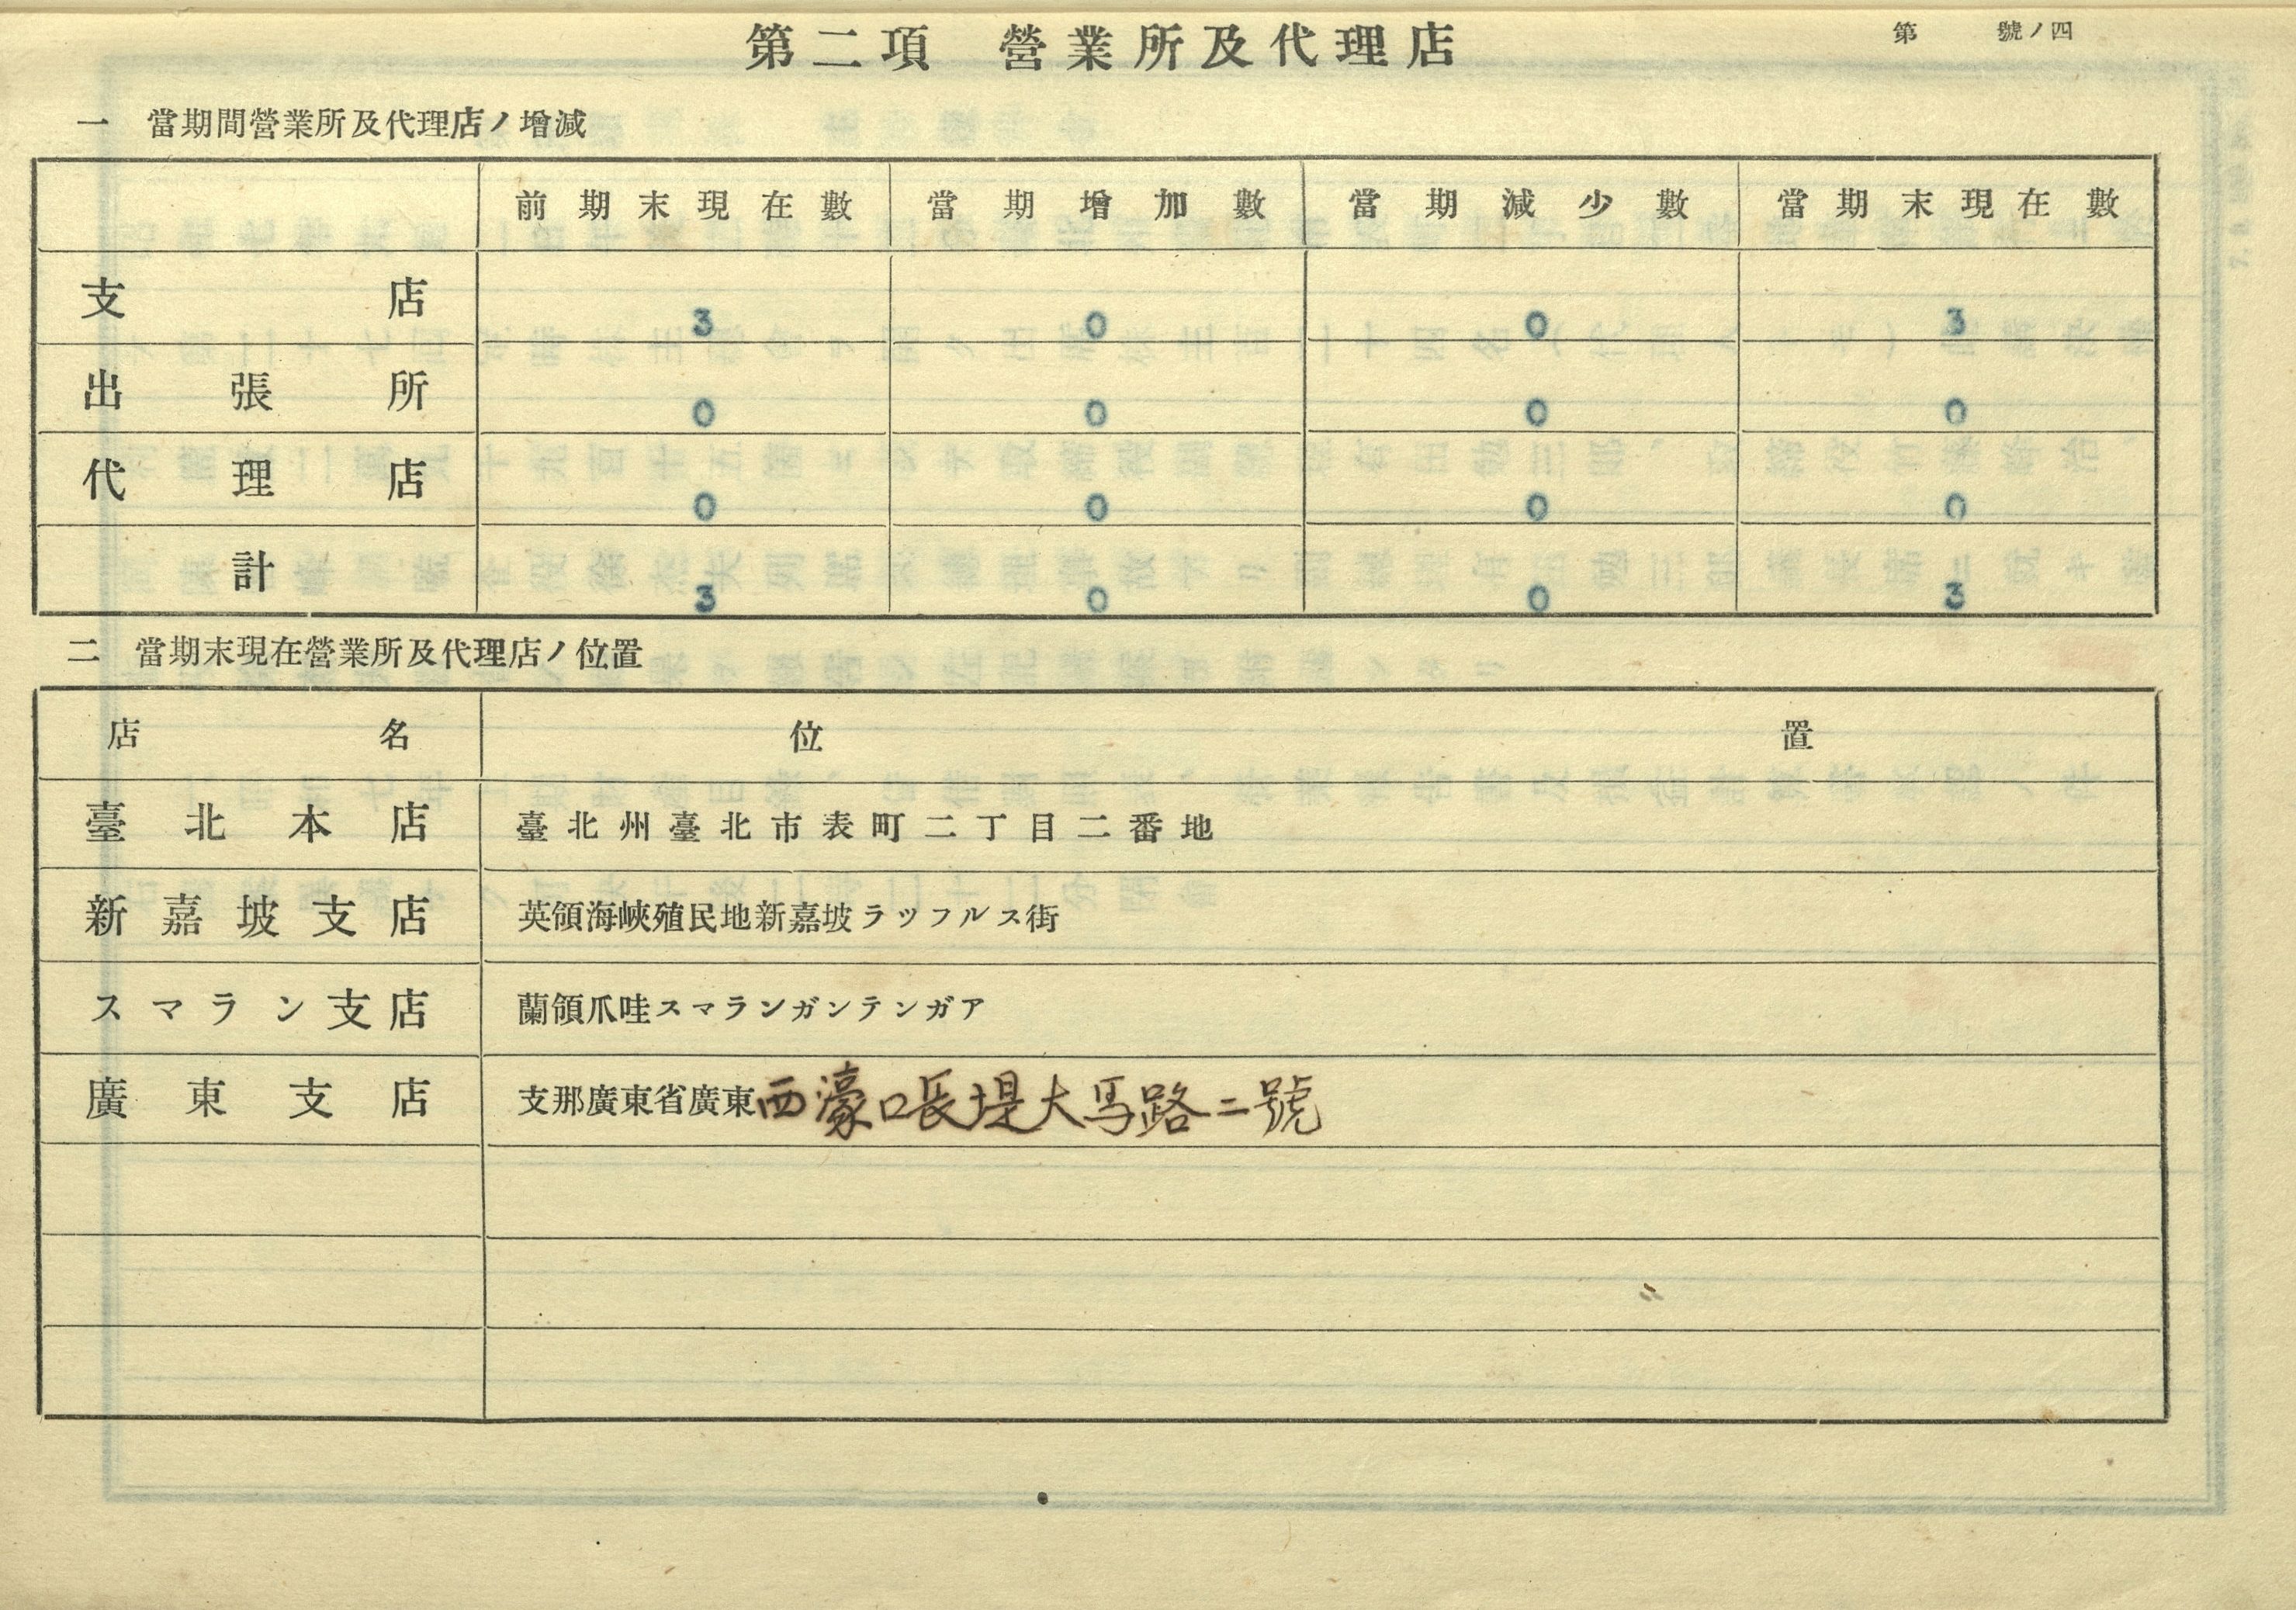 第二項 營業所及代理店
第 號ノ四
一 當期間營業所及代理店ノ增減
前期末現在數 當期增加數 當期減少數 當期末現在數
支店 3 0 0 3
出張所 0 0 0 0
代理店 0 0 0 0
計 3 0 0 3
二 當期末現在營業所及代理店ノ位置
店名 位置
臺北本店 臺北州臺北市表町二丁目二番地
新嘉坡支店 英領海峽殖民地新嘉坡ラッフルス街
スマラン支店 蘭領爪哇スマランガンテンガア
廣東支店 支那廣東省廣東西濠口長堤大馬路二號